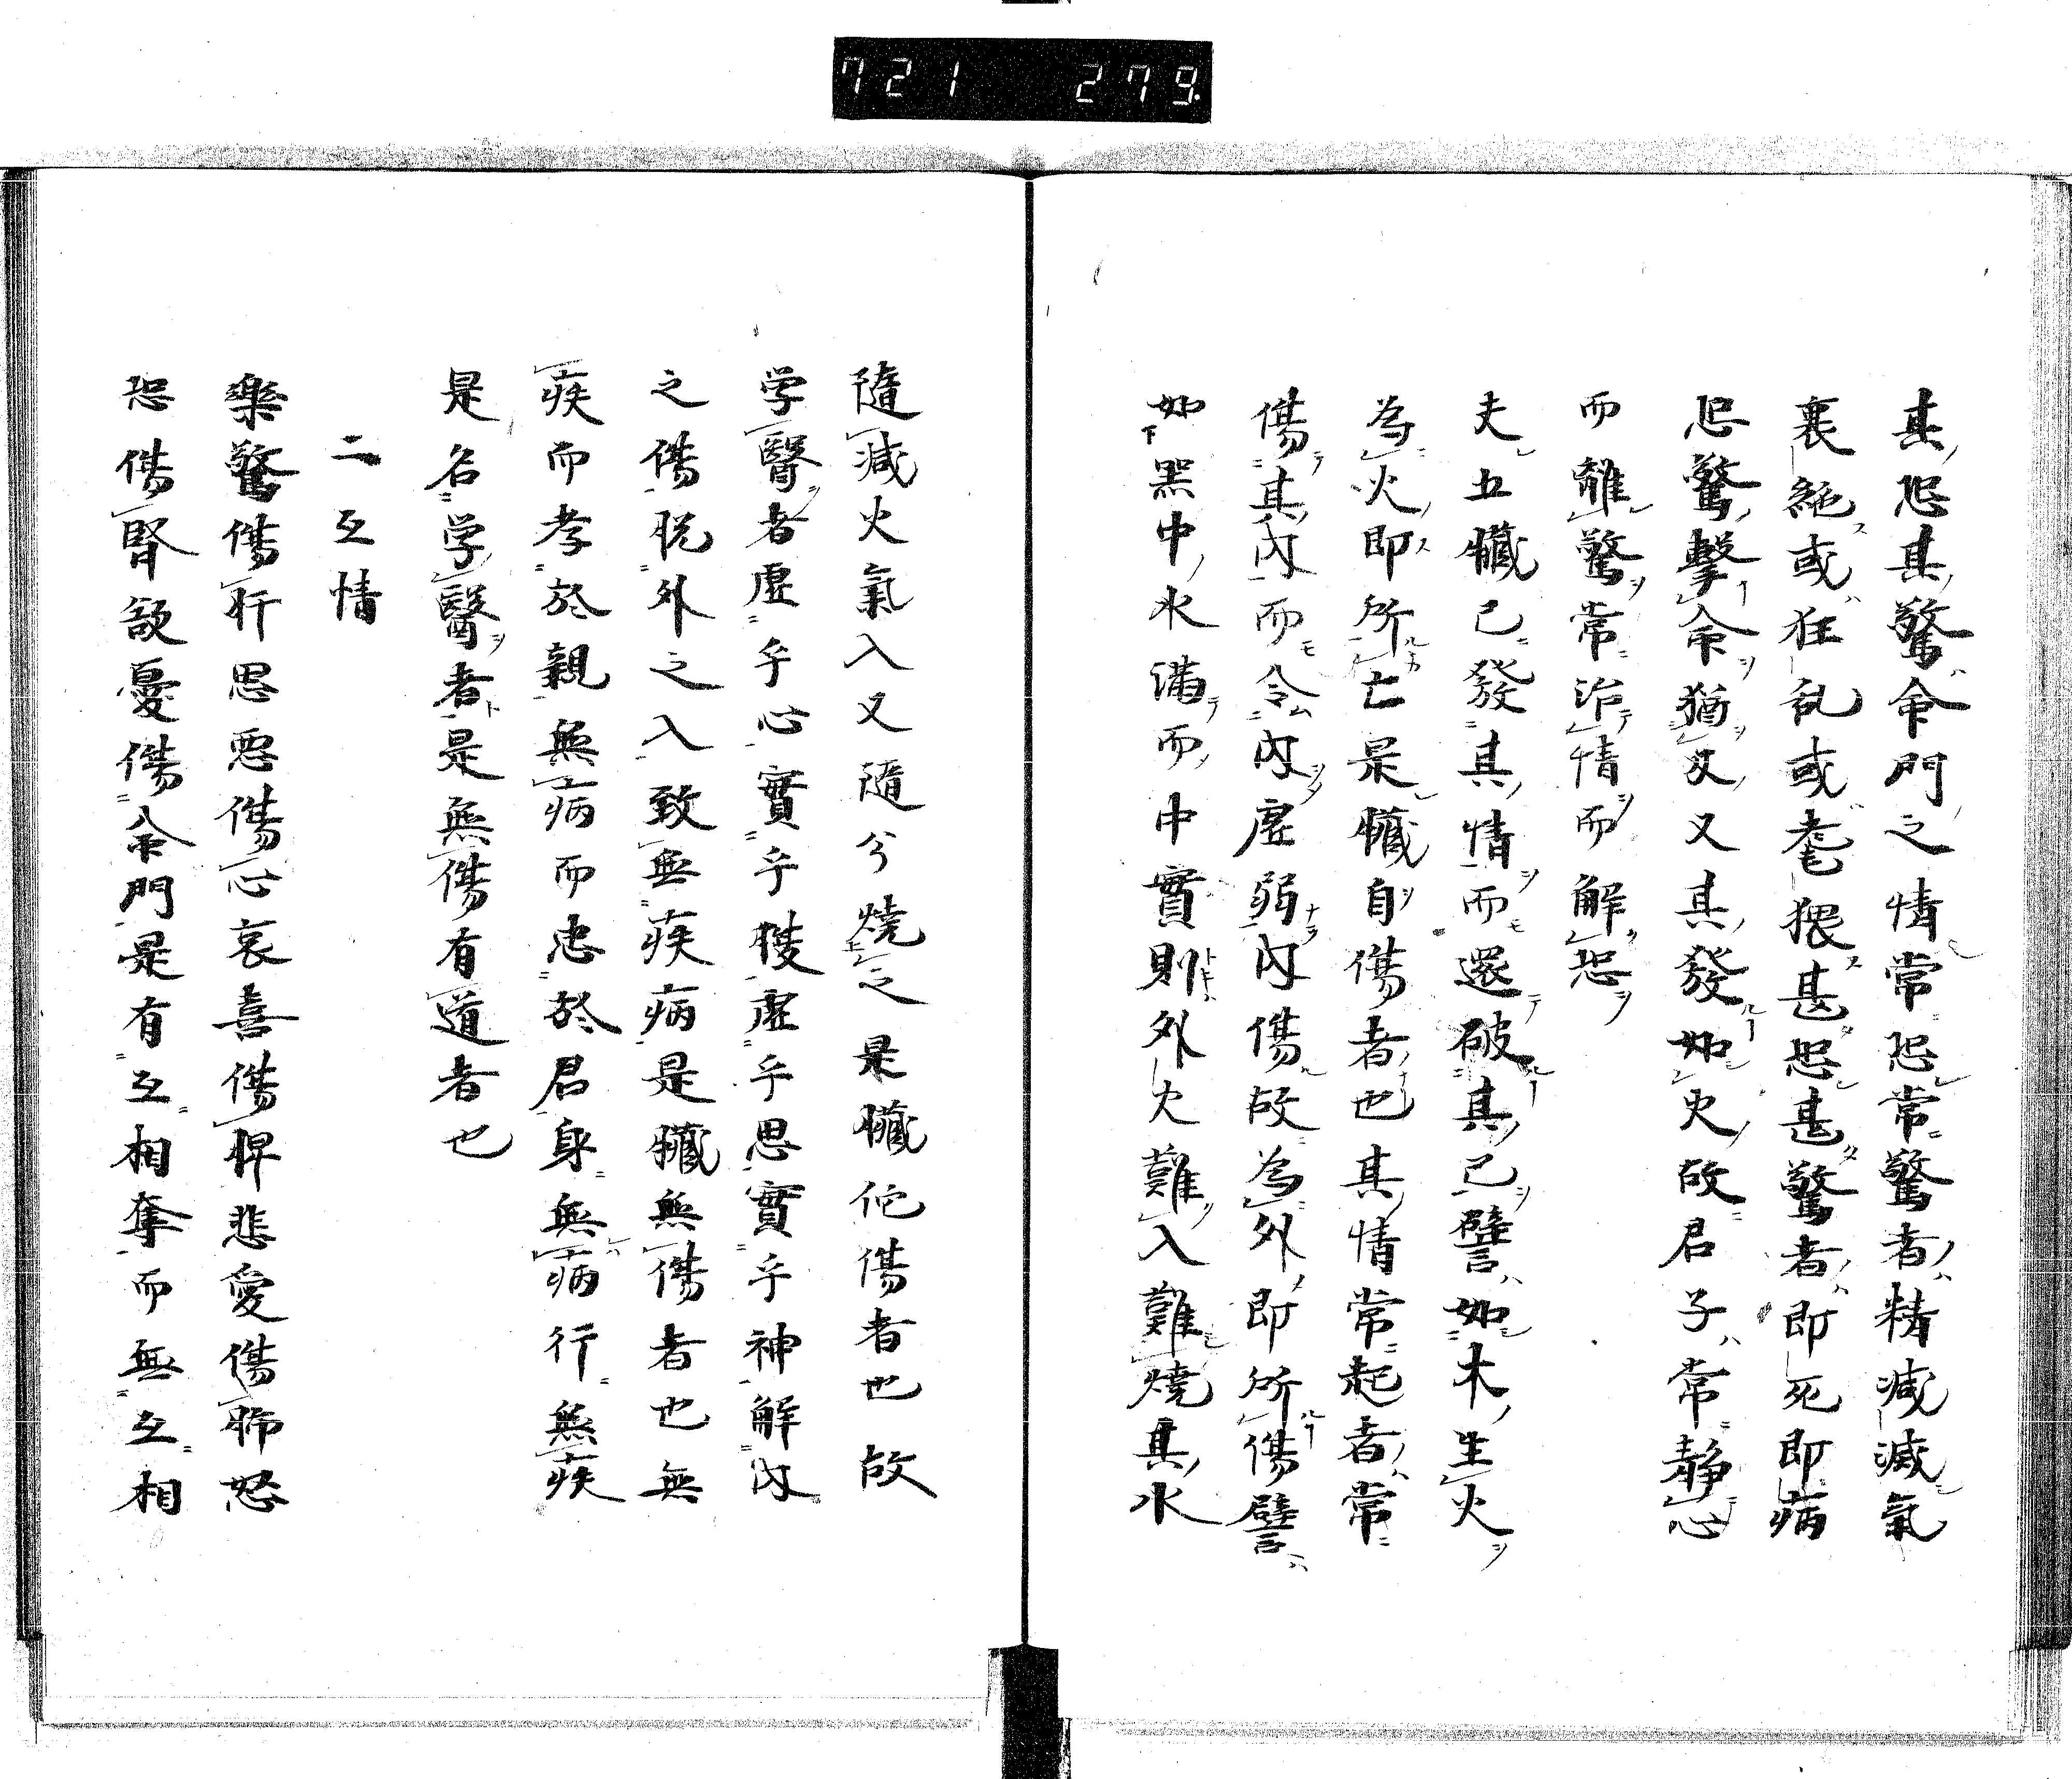 721 279.
其恐其驚命門之情常恐常驚者精減滅氣
衰絶或狂乱或耄猥甚恐甚驚者即死即病
恐驚撃命猶又又其發如火故君子常静心
而離驚常治情而解恐
夫五臓已發其情而還破其己譬如木生火
為火即所亡是臓自傷者也其情常起者常
傷其内而令内虚弱内傷故為外即所傷譬
如器中水満而中實則外火難入難燒其水
隨減火氣入又隨兮燒之是臓佗傷者也故
学醫者虚乎心實乎腠虚乎思實乎神解内
之傷脱外之入致無疾病是臓無傷者也無
疾而孝於親無病而忠於君身無病行無疾
是名学醫者是無傷有道者也
二互情
樂驚傷肝思惡傷心哀喜傷脾悲愛傷肺怒
恐傷腎欲憂傷命門是有互相奪而無互相